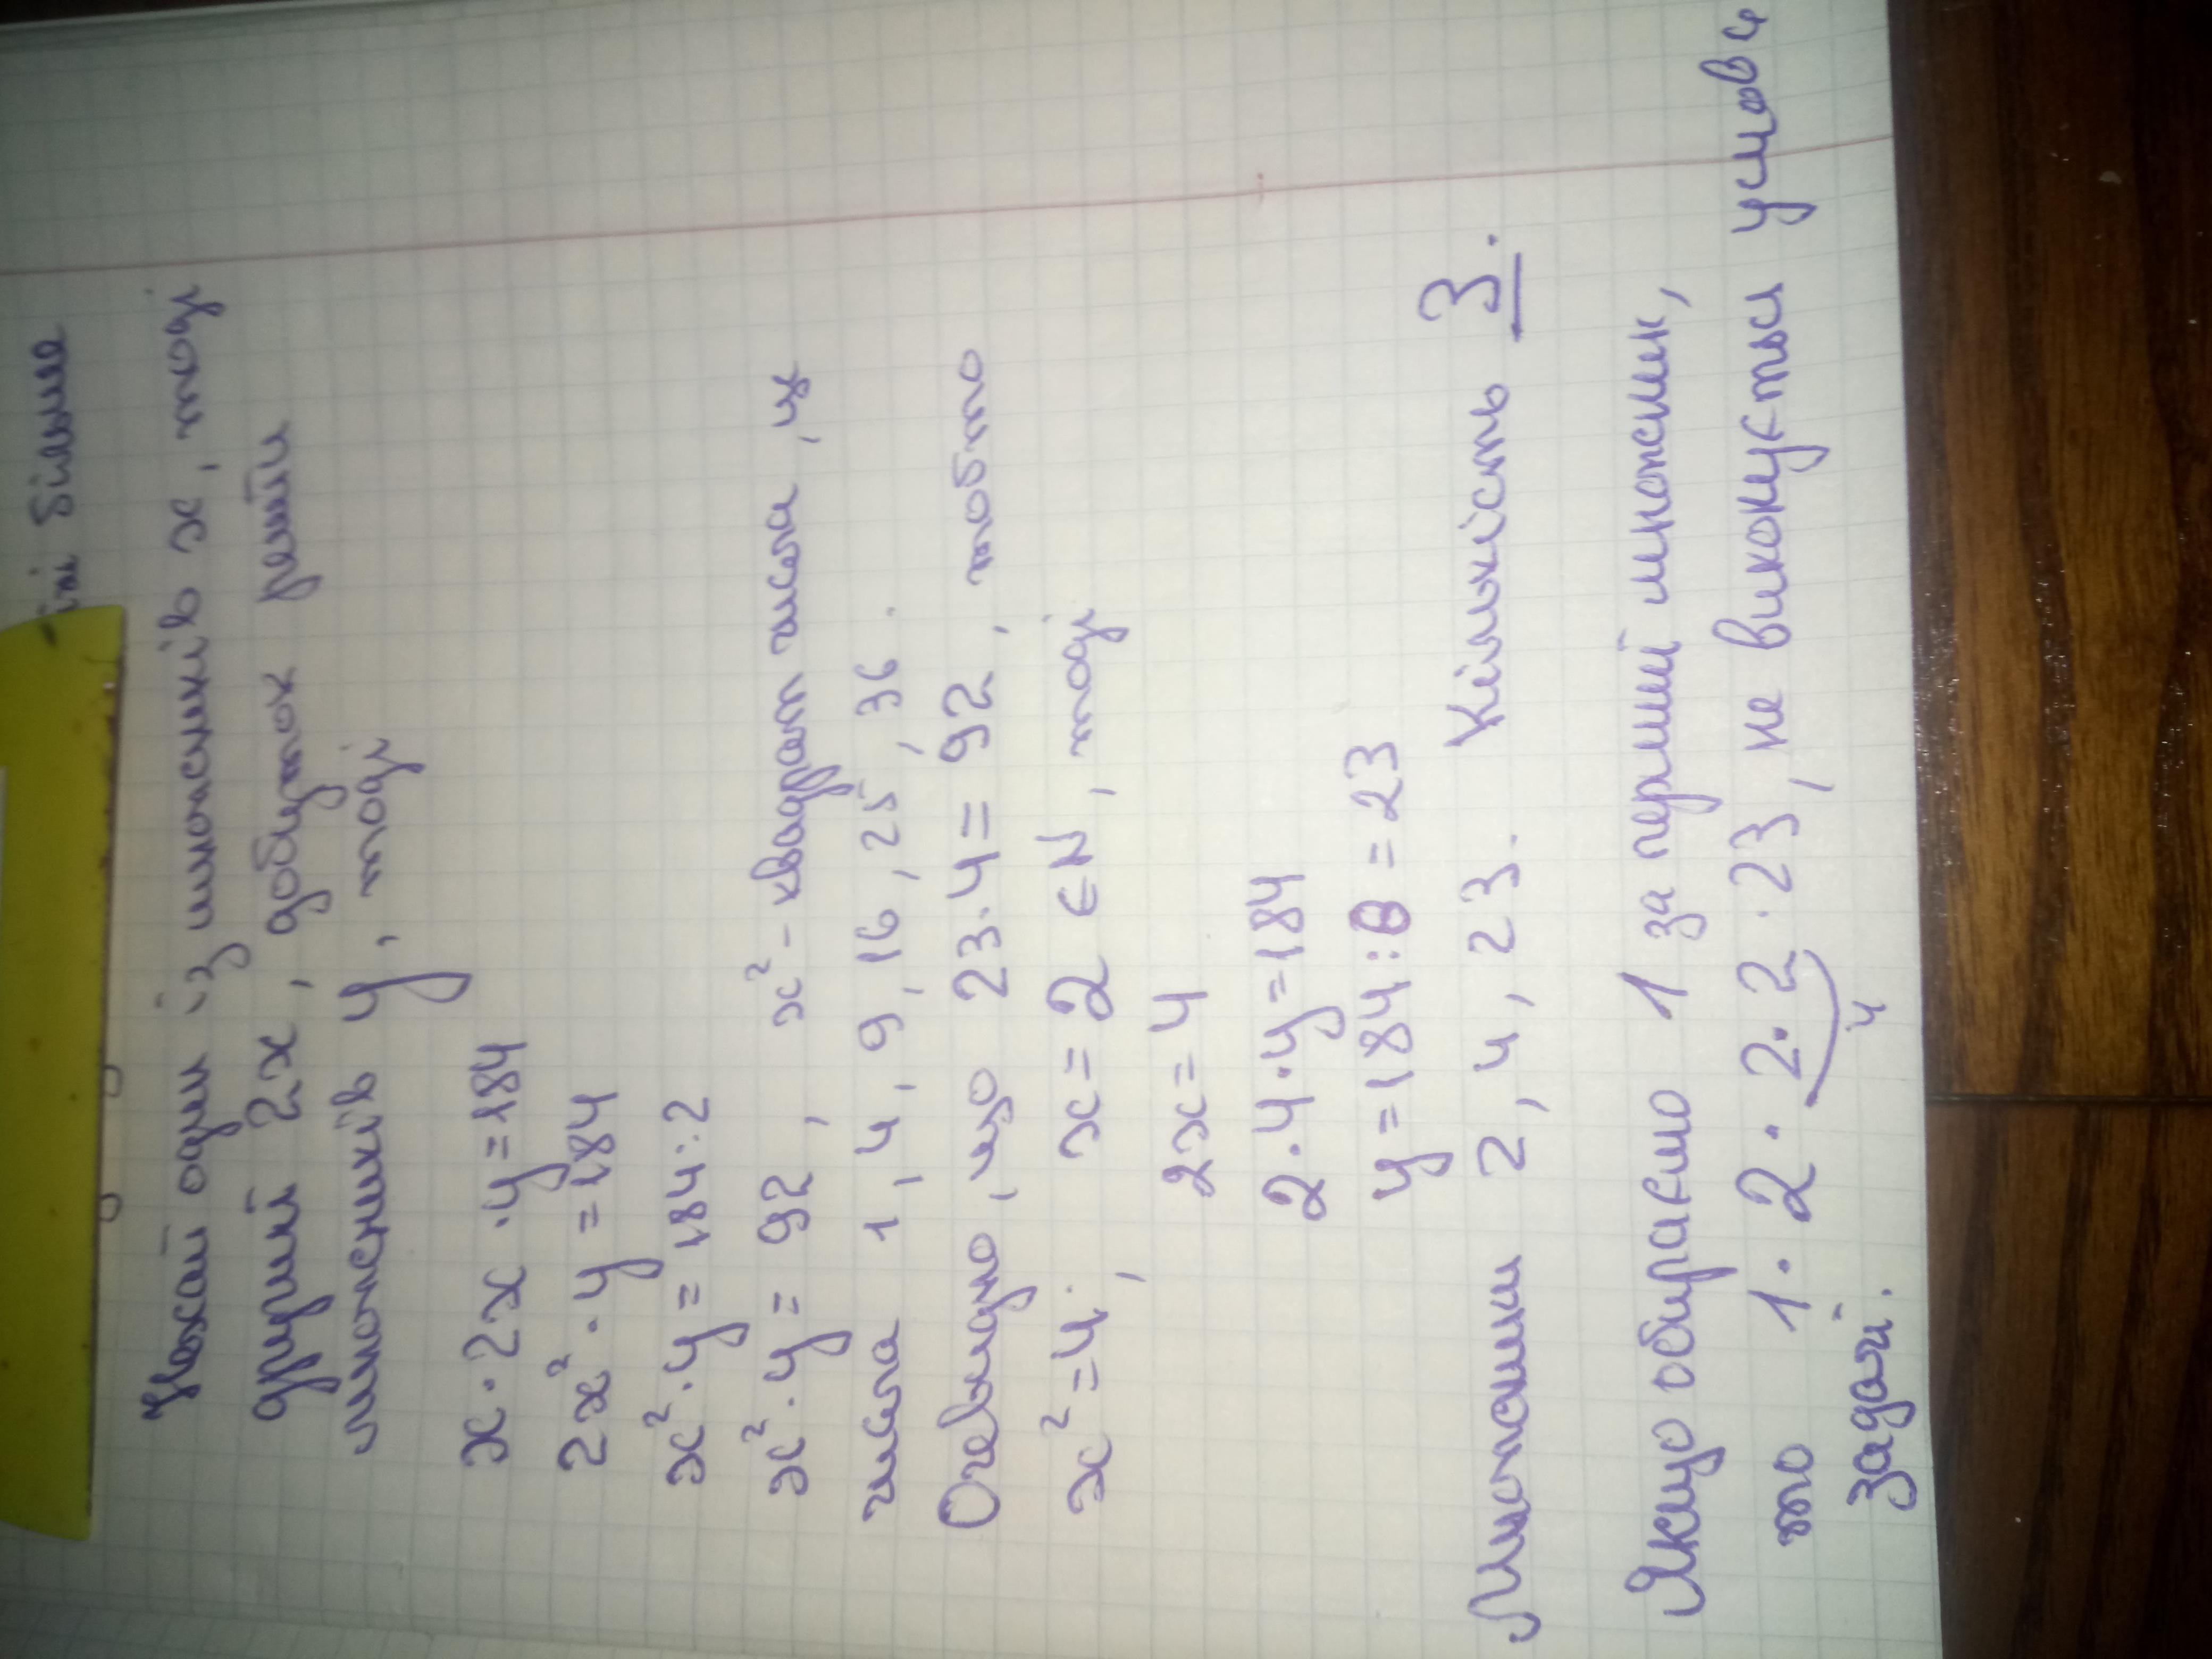 більше
Нехай один із множників x, тоді
другий 2x, добуток решти
множників y, тоді
x·2x·y=184
2x²·y=184
x²·y=184:2
x²·y=92, x²-квадрат числа, це
числа 1, 4, 9, 16, 25, 36.
Очевидно, що 23·4=92, тобто
x²=4; x=2 ∈N, тоді
2x=4
2·4·y=184
y=184:8=23
Множники 2, 4, 23. Кількість 3.
Якщо обираємо 1 за перший множник,
то 1·2·2·2·23, не виконується умова
4
задачі.